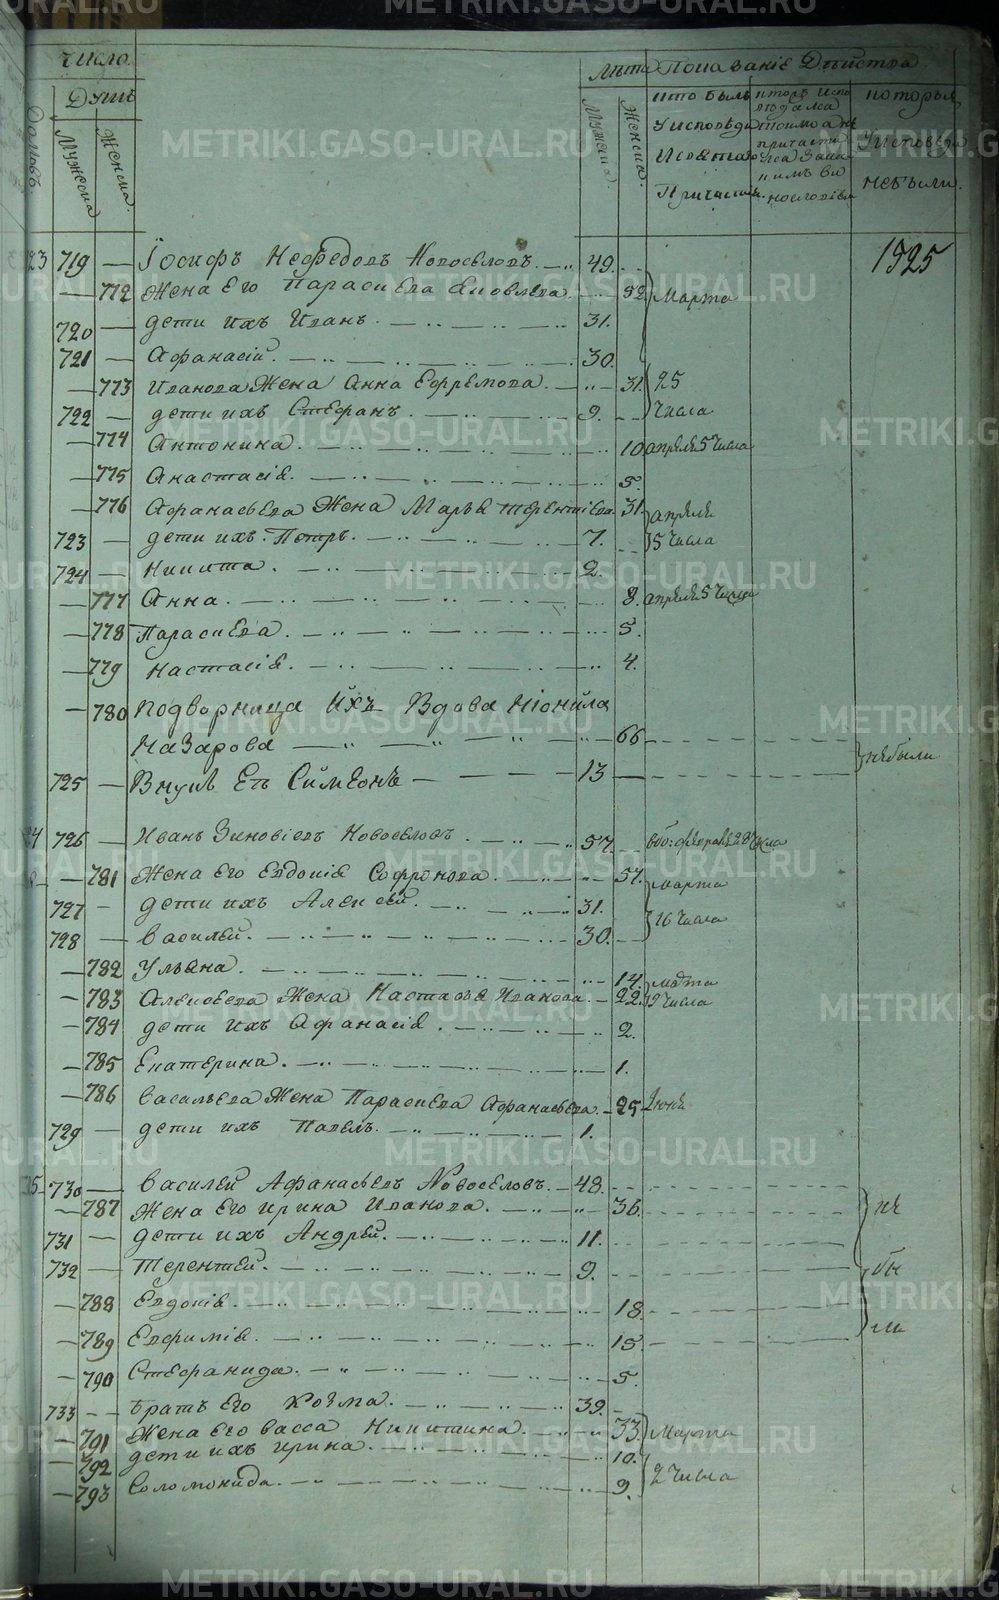 Число
Душъ
Домовъ
Мужеска
Женска.
Лѣта
Мужска
Женска.
Показанiе Дѣйства
кто былъ
У исповѣди
и Свята
Причастия.
которыя
У исповѣди
небыли.
1825
23 719 — Iосифъ Нефедовъ Новоселовъ. 49.
— 772 Жена Его Параскева Яковлева 52 Марта
720 — дети ихъ Иванъ. 31.
721 — Афанасiй. 30.
— 773 Иванова Жена Анна Ефремова. 31. 25
722 — дети ихъ Стефанъ. 9. числа
— 774 Антонина. 10 апреля 5 числа
— 775 Анастасiя. 5.
— 776 Афанасьева Жена Марья терентiева 31. апреля
723 — дети ихъ. Петръ. 7. 5 числа
724 — Никита. 2.
— 777 Анна. 8. апреля 5 числа
— 778 Параскева. 5.
— 779 настасiя. 4.
— 780 подворница Ихъ Вдова Нiонила
Назарова 66
725 — Внукъ Ея Симионъ 13 небыли
24 726 — Иванъ Зиновiевъ Новоселовъ. 57. февраля 28 числа
— 781 Жена Его Евдокiя Софронова. 57. Марта
727 — дети ихъ Алексей. 31. 16 числа
728 — василей. 30.
— 782 Ульяна. 14. марта
— 783 Алексеева Жена Настасья Иванова. 22. 2 числа
— 784 дети ихъ Афанасiя. 2.
— 785 Екатерина. 1.
— 786 васильева Жена Параскева Афанасьева. 25
729 — дети ихъ Павелъ. 1.
25 730 — василей Афанасьевъ Новоселовъ. 48.
— 787 Жена Его ирина Иванова. 36. не
731 — дети ихъ Андрей. 11.
732 — терентей. 9. бы
— 788 Евдокiя. 18
— 789 Евфимiя. 15. ли
— 790 Стефанида. 5.
733 — братъ Его Козма. 39.
— 791 Жена Его васса Никитина. 33 Марта
— 792 дети ихъ ирина. 10.
— 793 Соломонида. 9. 2 числа
METRIKI.GASO-URAL.RU